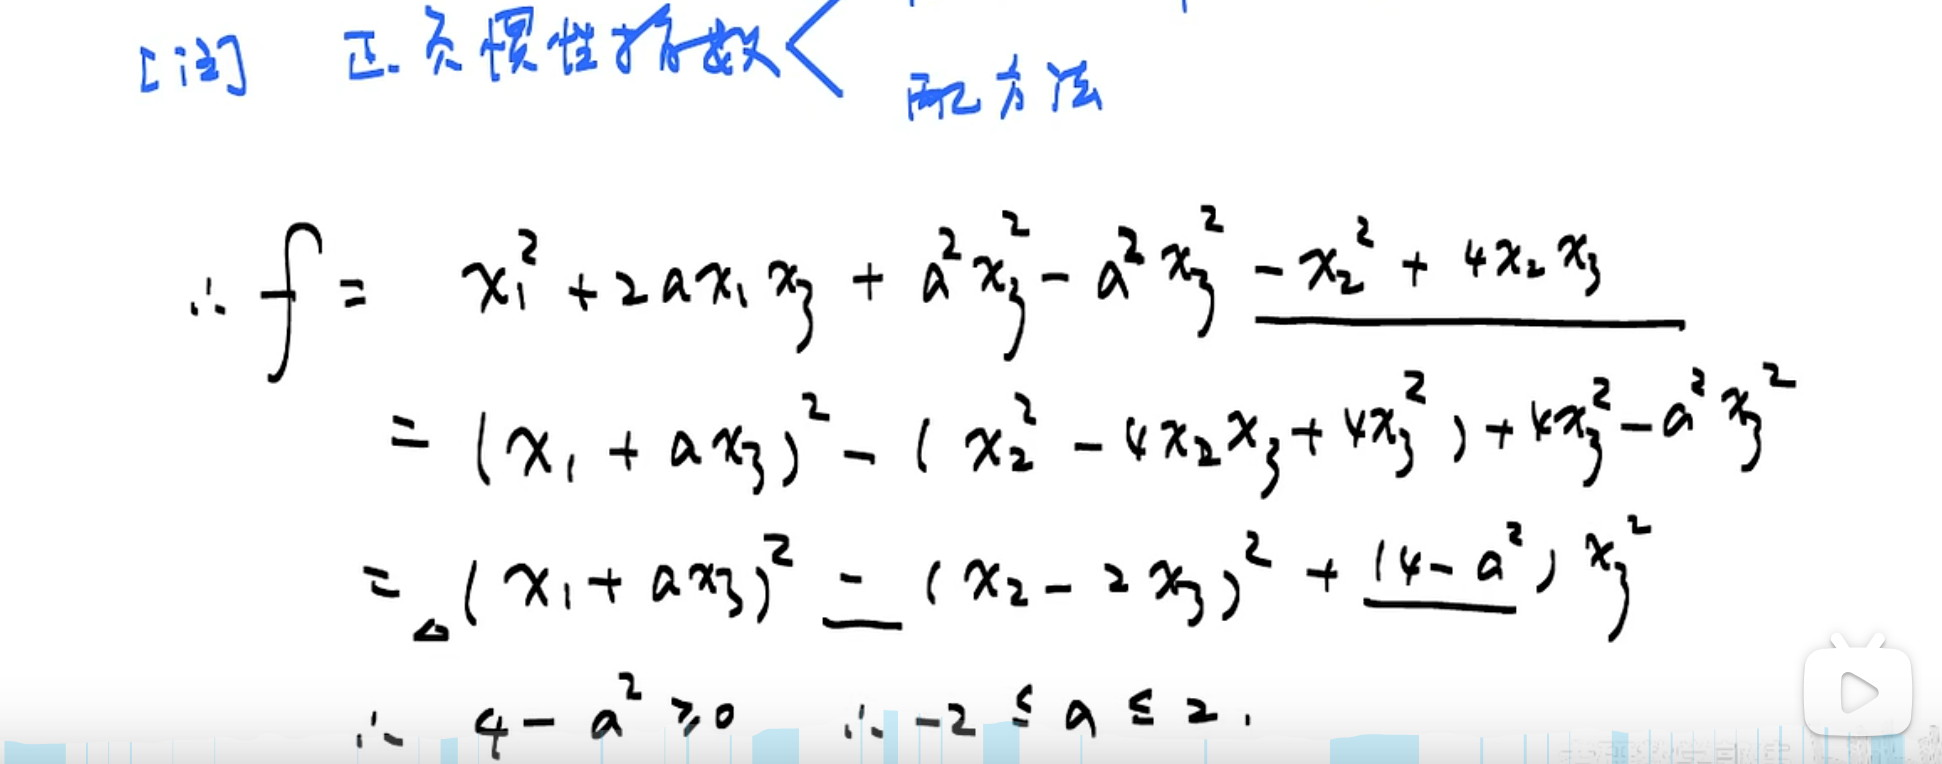 [注] 正.负惯性指数<
配方法
∴ f = x₁² + 2ax₁x₃ + a²x₃² - a²x₃² - x₂² + 4x₂x₃
= (x₁ + ax₃)² - (x₂² - 4x₂x₃ + 4x₃²) + 4x₃² - a²x₃²
= (x₁ + ax₃)² - (x₂ - 2x₃)² + (4 - a²)x₃²
∴ 4 - a² ≥ 0 ∴ -2 ≤ a ≤ 2.